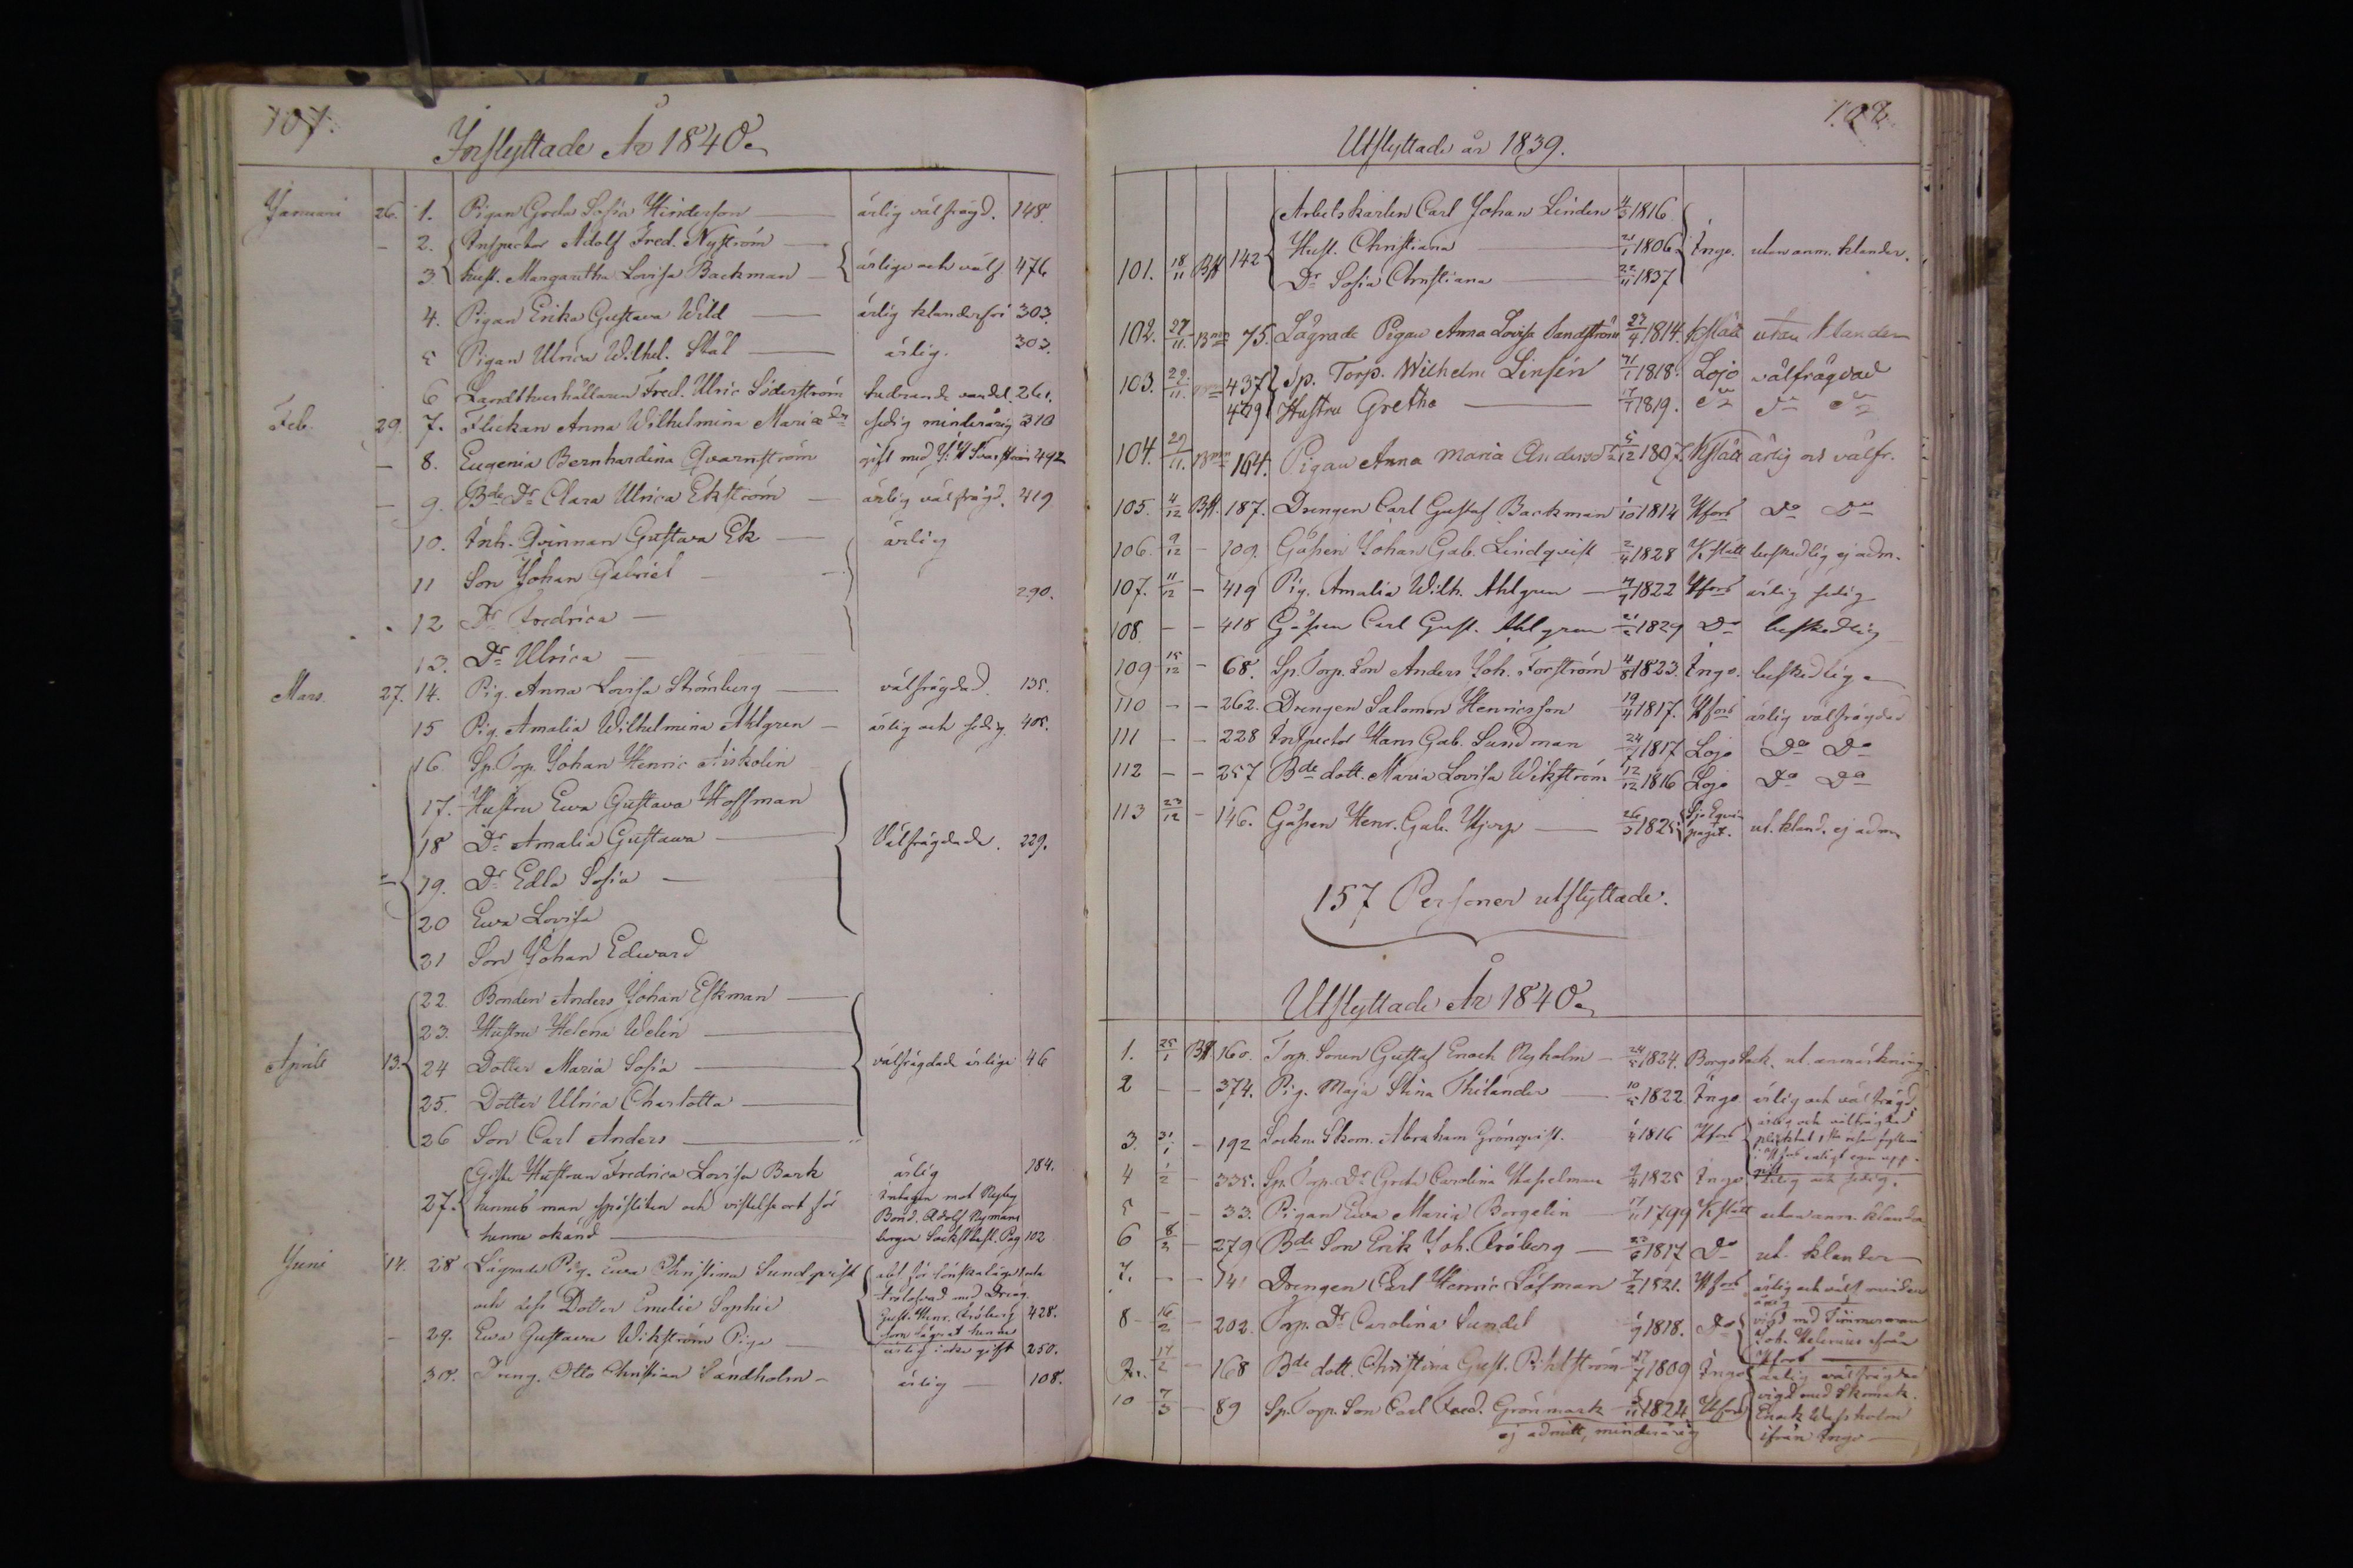 107.
Inflyttade År 1840.
Januari 26. 1. Pigan Greta Sofia Hinderson ärlig välfrägd. 148.
– 2. Inspector Adolf Fred. Nyström
3 hust. Margaretha Lovisa Backman ärlige och välf 476
4. Pigan Erika Gustava Wild ärlig klanderfri 303.
5 Pigan Ulrica Wilhel. Stål ärlig. 303.
6 Landthushållaren Fred. Ulric Söderström hedrande vandel 261.
Feb. 29. 7. Flickan Anna Wilhelmina Mariæ dr sedig minderårig 310
– 8. Eugenia Bernhardina Qvarnström gift med 492
– 9. Bde Dr Clara Ulrica Ekström ärlig välfrägd. 419
10. Inh. Qvinnan Gustava Ek ärlig
11 Son Johan Gabriel
290.
12 Dr Fredrica
13. Dr Ulrica
Mars. 27. 14. Pig. Anna Lovisa Strömberg välfrägdad. 135.
15 Pig. Amalia Wilhelmina Ahlgren ärlig och sedig. 405.
16. Sp. Torp. Johan Henric
17. Hustru Ewa Gustava Hoffman
18 Dr Amalia Gustava Välfrägdade. 229.
19. Dr Edla Sofia
20 Ewa Lovisa
21 Son Johan Edward
22 Bonden Anders Johan Eskman
23. Hustru Helena Welin
Aprill 13. 24 Dotter Maria Sofia välfrägdade ärlige 46
25. Dotter Ulrica Charlotta
26 Son Carl Anders
27. Gifta Hustrun Fredrica Lovisa Bark ärlig 184.
hennes man och vistelseort för intagen mot Nyby
henne okänd Bond. Adolf Nymans
102
Juni 14. 28 Lägrade Pig. Ewa Christina Sundqvist
och dess Dotter Emelie Sophie trolofvad med Dreng.
Gust. Henr. Fröberg 428.
som lägrat henne
– 29. Ewa Gustava Wikström Piga ärlig icke gift 250.
30. Dreng. Otto Christian Sandholm ärlig 108.
108.
Utflyttade år 1839.
Arbetskarlen Carl Johan Linden 4/3 1816
Hust. Christiana 21/1 1806
101. 18/11 Bff 142 Dr Sofia Christiana 22/11 1837 Ingo. utan anm. klander.
102. 27/11 75. Lägrade Pigan Anna Lovisa Sandström 23/4 1814. Kslätt utan klander
103. 29/11 437 Sp. Torp. Wilhelm Linsén 1818. Lojo välfrägdad
429 Hustru Gretha 1819. do do do
104. 29/11 164. Pigan Anna Maria Andersdr 5/12 1807 Kslätt ärlig och välfr.
105. 4/12 Bff. 187. Drengen Carl Gustaf Backman 1/10 1814 Hfors Do Do
106. 9/12 – 109. Gåssen Johan Gab. Lindqvist 2/4 1828 Kslätt beskedlig ej adm.
107. 11/12 – 419 Pig. Amalia Wilh. Ahlgren 1822 Hfors ärlig sedig
108 – – 418 Gåssen Carl Gust. Ahlgren 1829 Do beskedlig
109 15/12 – 68. Sp. Torp. Son Anders Joh. Forström 4/8 1823. Ingo. beskedlig
110 – – 262. Drengen Salomon Henricsson 19/4 1817. Hfors ärlig välfrägdad
111 – – 228 Inspector Hans Gab. Sundman 24/7 1817 Lojo Do Do
112 – – 257 Bde dott. Maria Lovisa Wikström 12/12 1816 Lojo Do Do
113 23/12 – 146. Gåssen Henr. Gab. 26/3 1825. Sjö Eqvipaget. ut. kland. ej adm.
157 Personer utflyttade.
Utflyttade År 1840.
1. 25/1 Bff 160. Torp. Sonen Gustaf Enoch Nyholm 24/5 1824. Borgo Sock. ut. anmärkning
2 – – 374. Pig. Maja Stina Thilander 10/5 1822 Ingo ärlig och välfrägd.
3. 31/1 – 192 Sockn. Skom. Abraham Grönqvist. 1816 Hfors ärlig och välfrägdad
4 1/2 – 335. Sp. Torp. Dr Greta Carolina Hasselman 1825 Ingo ärlig och sedig.
5 – – 33. Pigan Ewa Maria Borgelin 17/11 1799 Kslätt utan anm. klander
6 8/2 – 279 Bde Son Erik Joh. Fröberg 1817 Do ut. klander
7. – – 141 Drengen Carl Henric Löfman 7/2 1821. Hfors ärlig och välf minderårig
8 16/2 – 202. Torp. Dr Carolina Sundel 1/9 1818. Do vigd med Timmerman
Joh. Helenius ifrån
Hfors
17/2 – 168 Bde dott. Christina Gust. Rihlström 1809 Ingo ärlig välfrägdad
vigd med Skomak.
10 7/3 – 89 Sp. Torp. Son Carl Fred. Grönmark 1824 Hfors Enoch Wessholm
ej admitt, minderårig ifrån Ingo